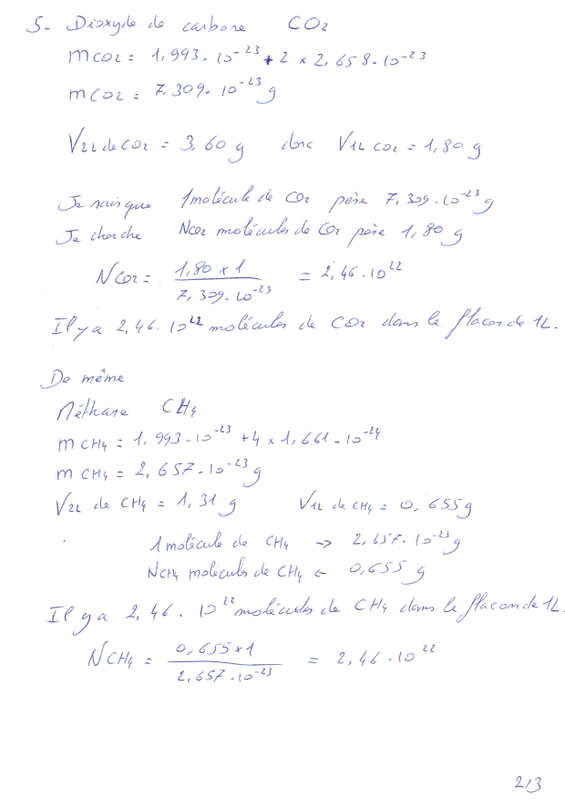 5- Dioxyde de carbone CO2
mCO2 = 1,993.10^-23 + 2 x 2,658.10^-23
mCO2 = 7,309.10^-23 g
V2L de CO2 = 3,60 g donc V1L CO2 = 1,80 g
Je sais que 1 molécule de CO2 pèse 7,309.10^-23 g
Je cherche NCO2 molécules de CO2 pèse 1,80 g
NCO2 = 1,80 x 1 / 7,309.10^-23 = 2,46.10^22
Il y a 2,46.10^22 molécules de CO2 dans le flacon de 1L.
De même
Méthane CH4
mCH4 = 1,993.10^-23 + 4 x 1,661.10^-24
mCH4 = 2,657.10^-23 g
V2L de CH4 = 1,31 g V1L de CH4 = 0,655 g
1 molécule de CH4 → 2,657.10^-23 g
NCH4 molécules de CH4 ← 0,655 g
Il y a 2,46.10^22 molécules de CH4 dans le flacon de 1L.
NCH4 = 0,655 x 1 / 2,657.10^-23 = 2,46.10^22
2/3